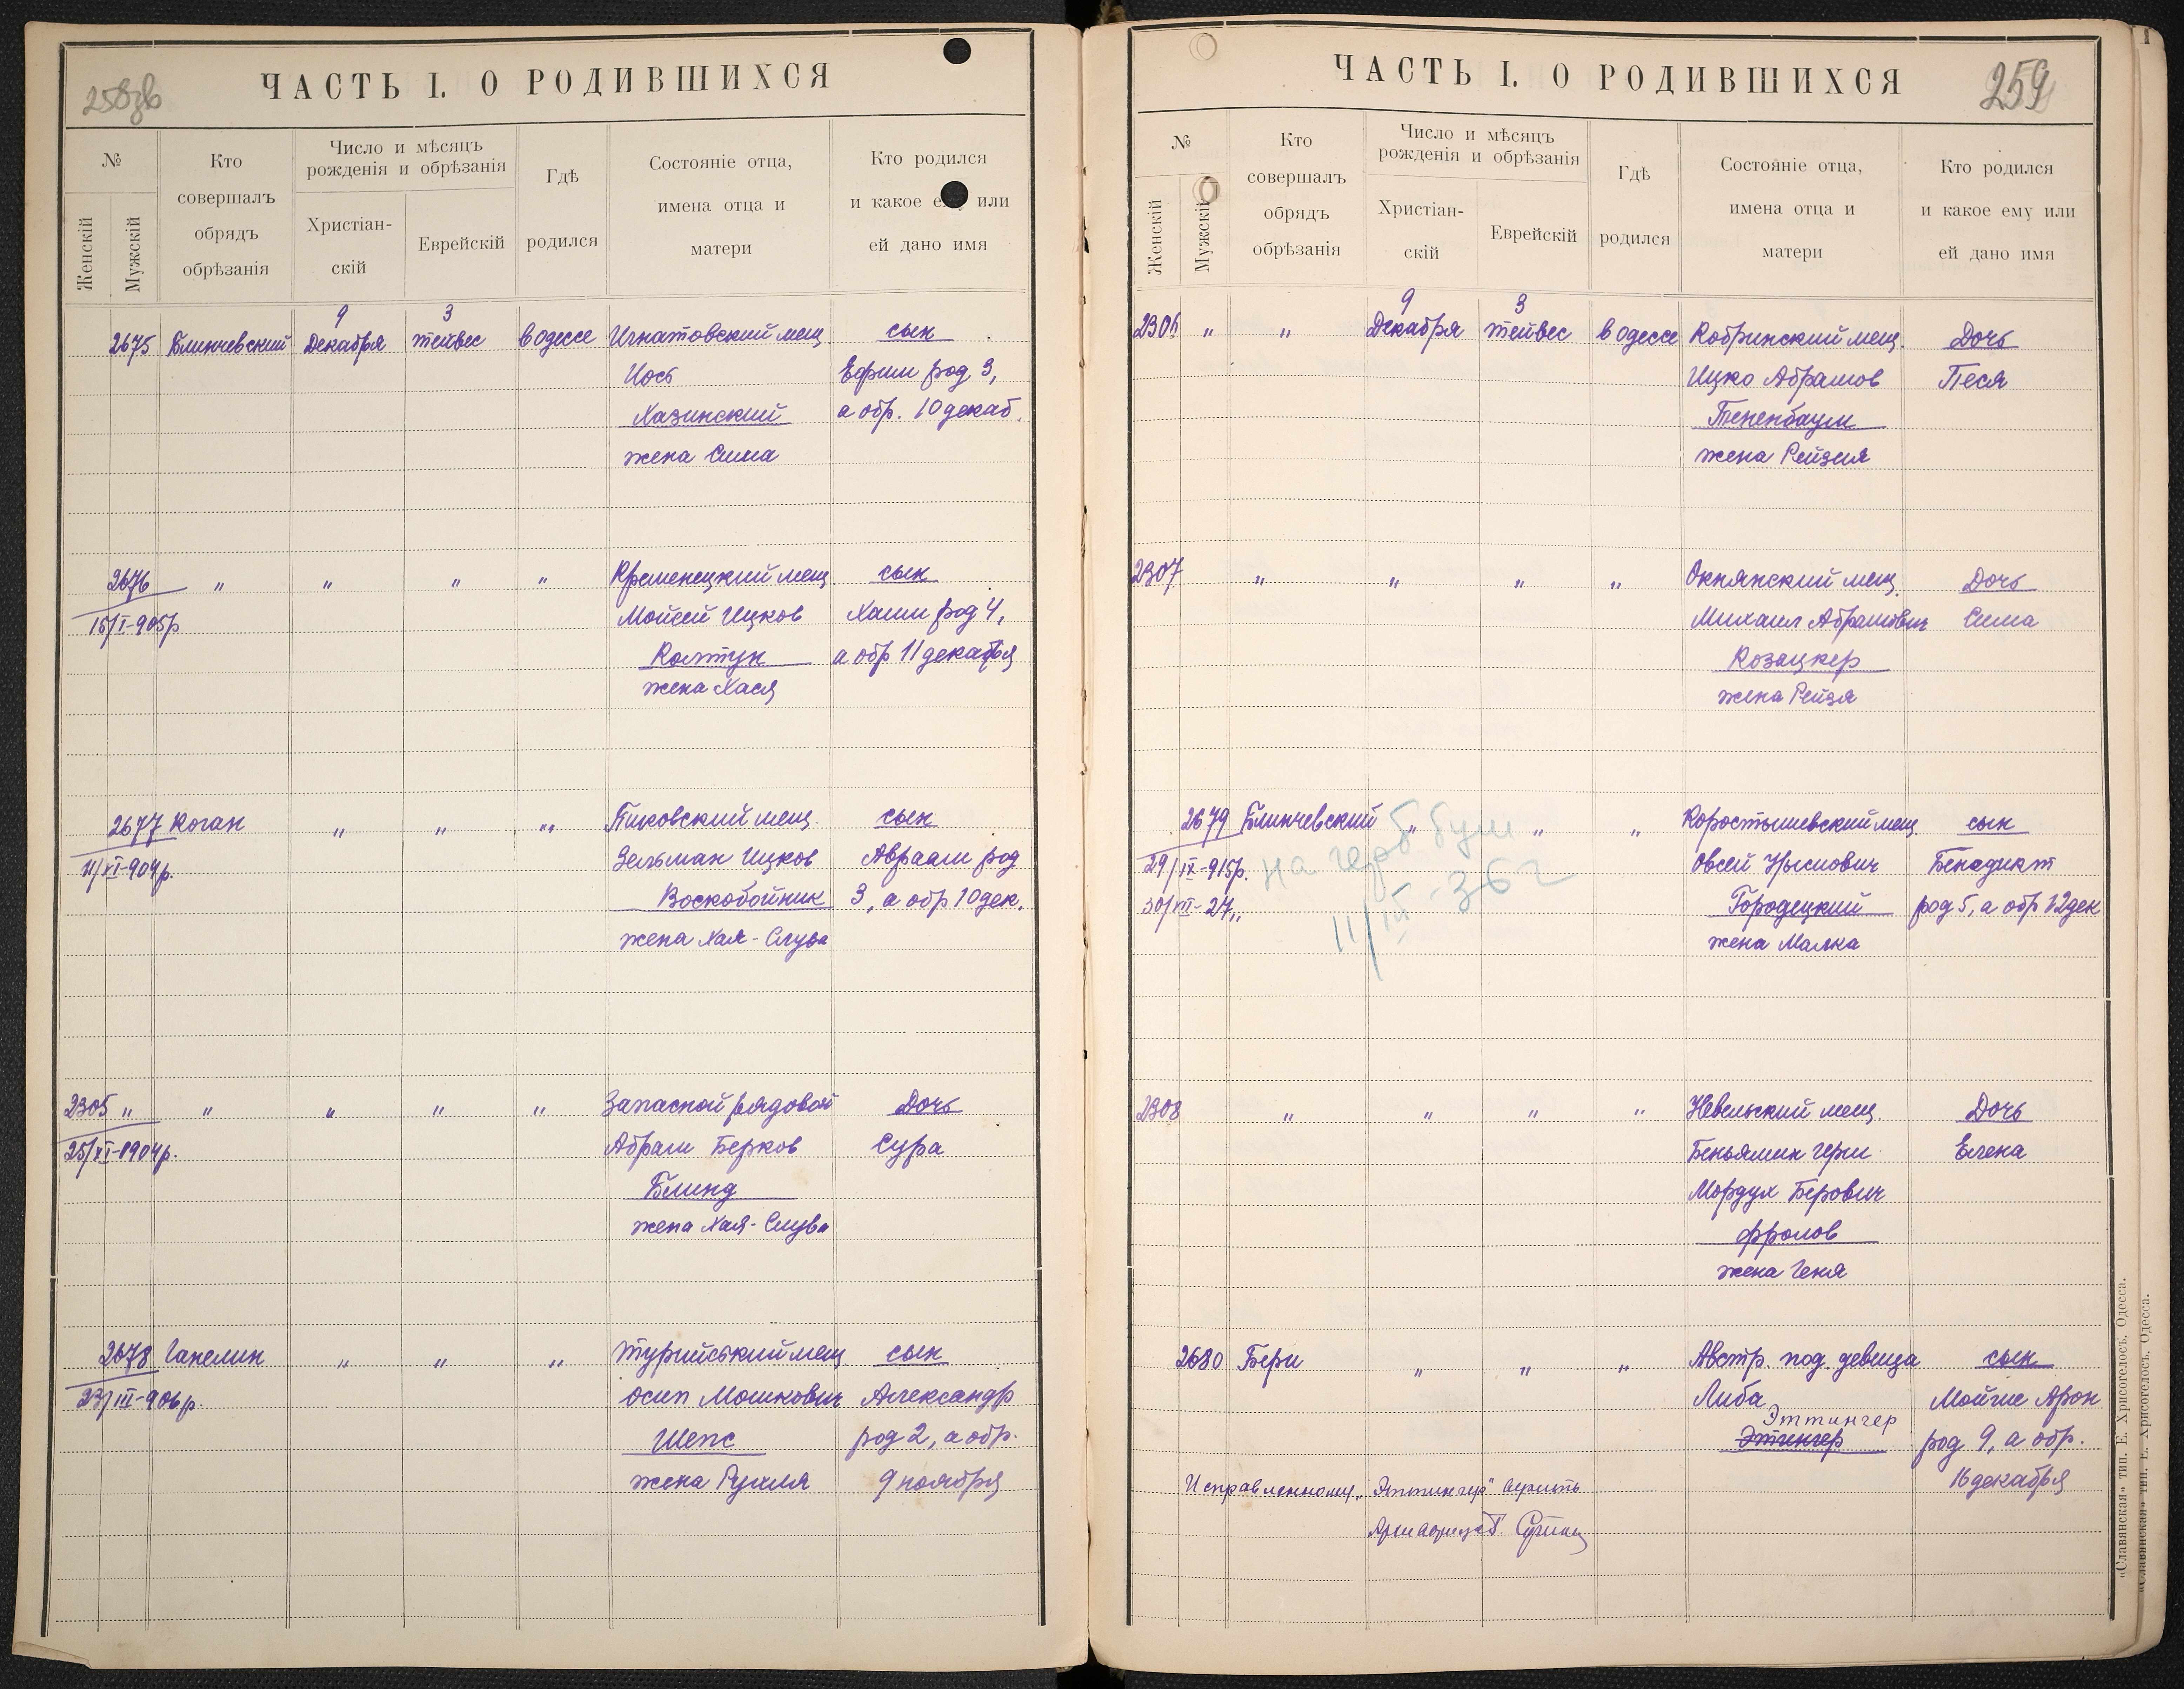 258об
ЧАСТЬ I. О РОДИВШИХСЯ
№
Женскій
Мужскій
Кто совершалъ обрядъ обрѣзанія
Число и мѣсяцъ рожденія и обрѣзанія
Христіан-
скій
Еврейскій
Гдѣ родился
Состояніе отца, имена отца и матери
Кто родился и какое ему или ей дано имя
9 3
2675 Блинчевский Декабря тейвес в Одессе Игнатовский мещ сын
Иось Ефрим род 3,
Хазинский а обр. 10 декаб.
жена Сима
2676 " " " " Кременецкий мещ сын
15/I-905р Мойсей Ицков Хаим род 4,
Колтун а обр 11 декабря
жена Хася
2677 Коган " " " Пиковский мещ. сын
11/XI-904р. Зельман Ицков Авраам род
Воскобойник 3, а обр 10 дек.
жена Хая-Слува
2305 " " " " " Запасной рядовой Дочь
25/XI-1904р. Абрам Берков Сура
Блинд
жена Хая-Слува
2678 Гапелин " " " Турийський мещ сын
23/III-906р. Осип Мошкович Александр
Шепс род 2, а обр.
жена Рухля 9 ноября
259
ЧАСТЬ I. О РОДИВШИХСЯ
№
Женскій
Мужскій
Кто совершалъ обрядъ обрѣзанія
Число и мѣсяцъ рожденія и обрѣзанія
Христіан-
скій
Еврейскій
Гдѣ родился
Состояніе отца, имена отца и матери
Кто родился и какое ему или ей дано имя
9 3
2306 " " Декабря тейвес в Одессе Кобринский мещ. Дочь
Ицко Абрамов Песя
Тененбаум
жена Рейзия
2307 " " " " Окнянский мещ. Дочь
Михаил Абрамович Сима
Козацкер
жена Рейзя
2679 Блинчевский " " " Коростышевский мещ. сын
29/IX-915р. Овсей Нысиович Бенедикт
30/XII-27,, Городецкий род 5, а обр 12 дек
жена Малка
на герб бум
11/III-36 г
2308 " " " " Невельский мещ. Дочь
Беньямин Герш Елена
Мордух Берович
Фролов
жена Геня
2680 Берш " " " Австр. под. девица сын
Либа Мойше Арон
Эттингер
Этингер род 9, а обр.
16 декабря
Исправленному „Эттингер" верить